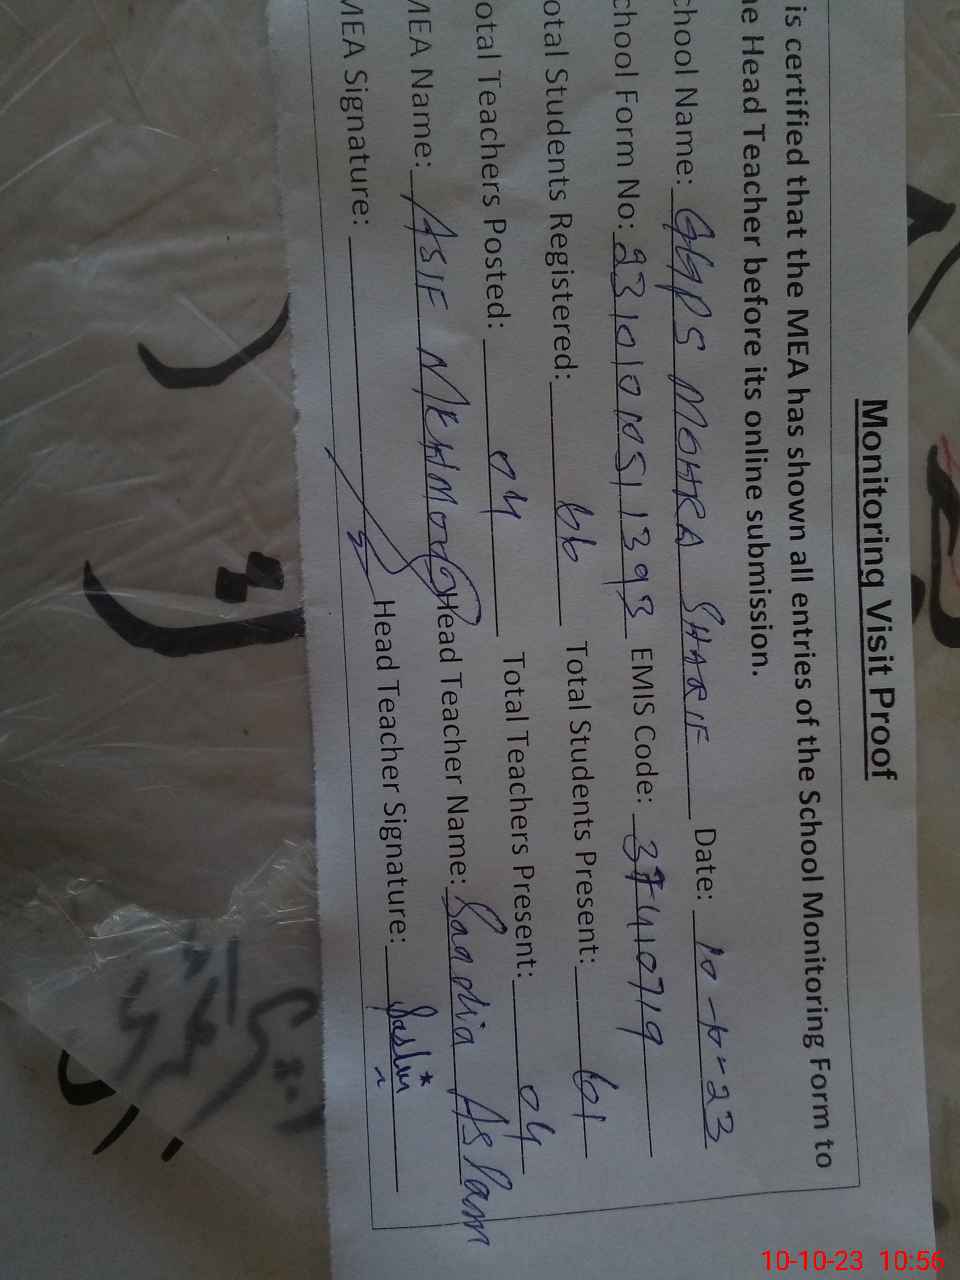 Monitoring Visit Proof
is certified that the MEA has shown all entries of the School Monitoring Form to
he Head Teacher before its online submission.
chool Name: GGPS MOHRA SHARIF Date: 10-10-23
chool Form No: 23101010511393 EMIS Code: 37410719
otal Students Registered: 66 Total Students Present: 61
otal Teachers Posted: 04 Total Teachers Present: 04
MEA Name: ASIF MEHMOOD Head Teacher Name: Saadia Aslam
MEA Signature: Head Teacher Signature:
10-10-23 10:56